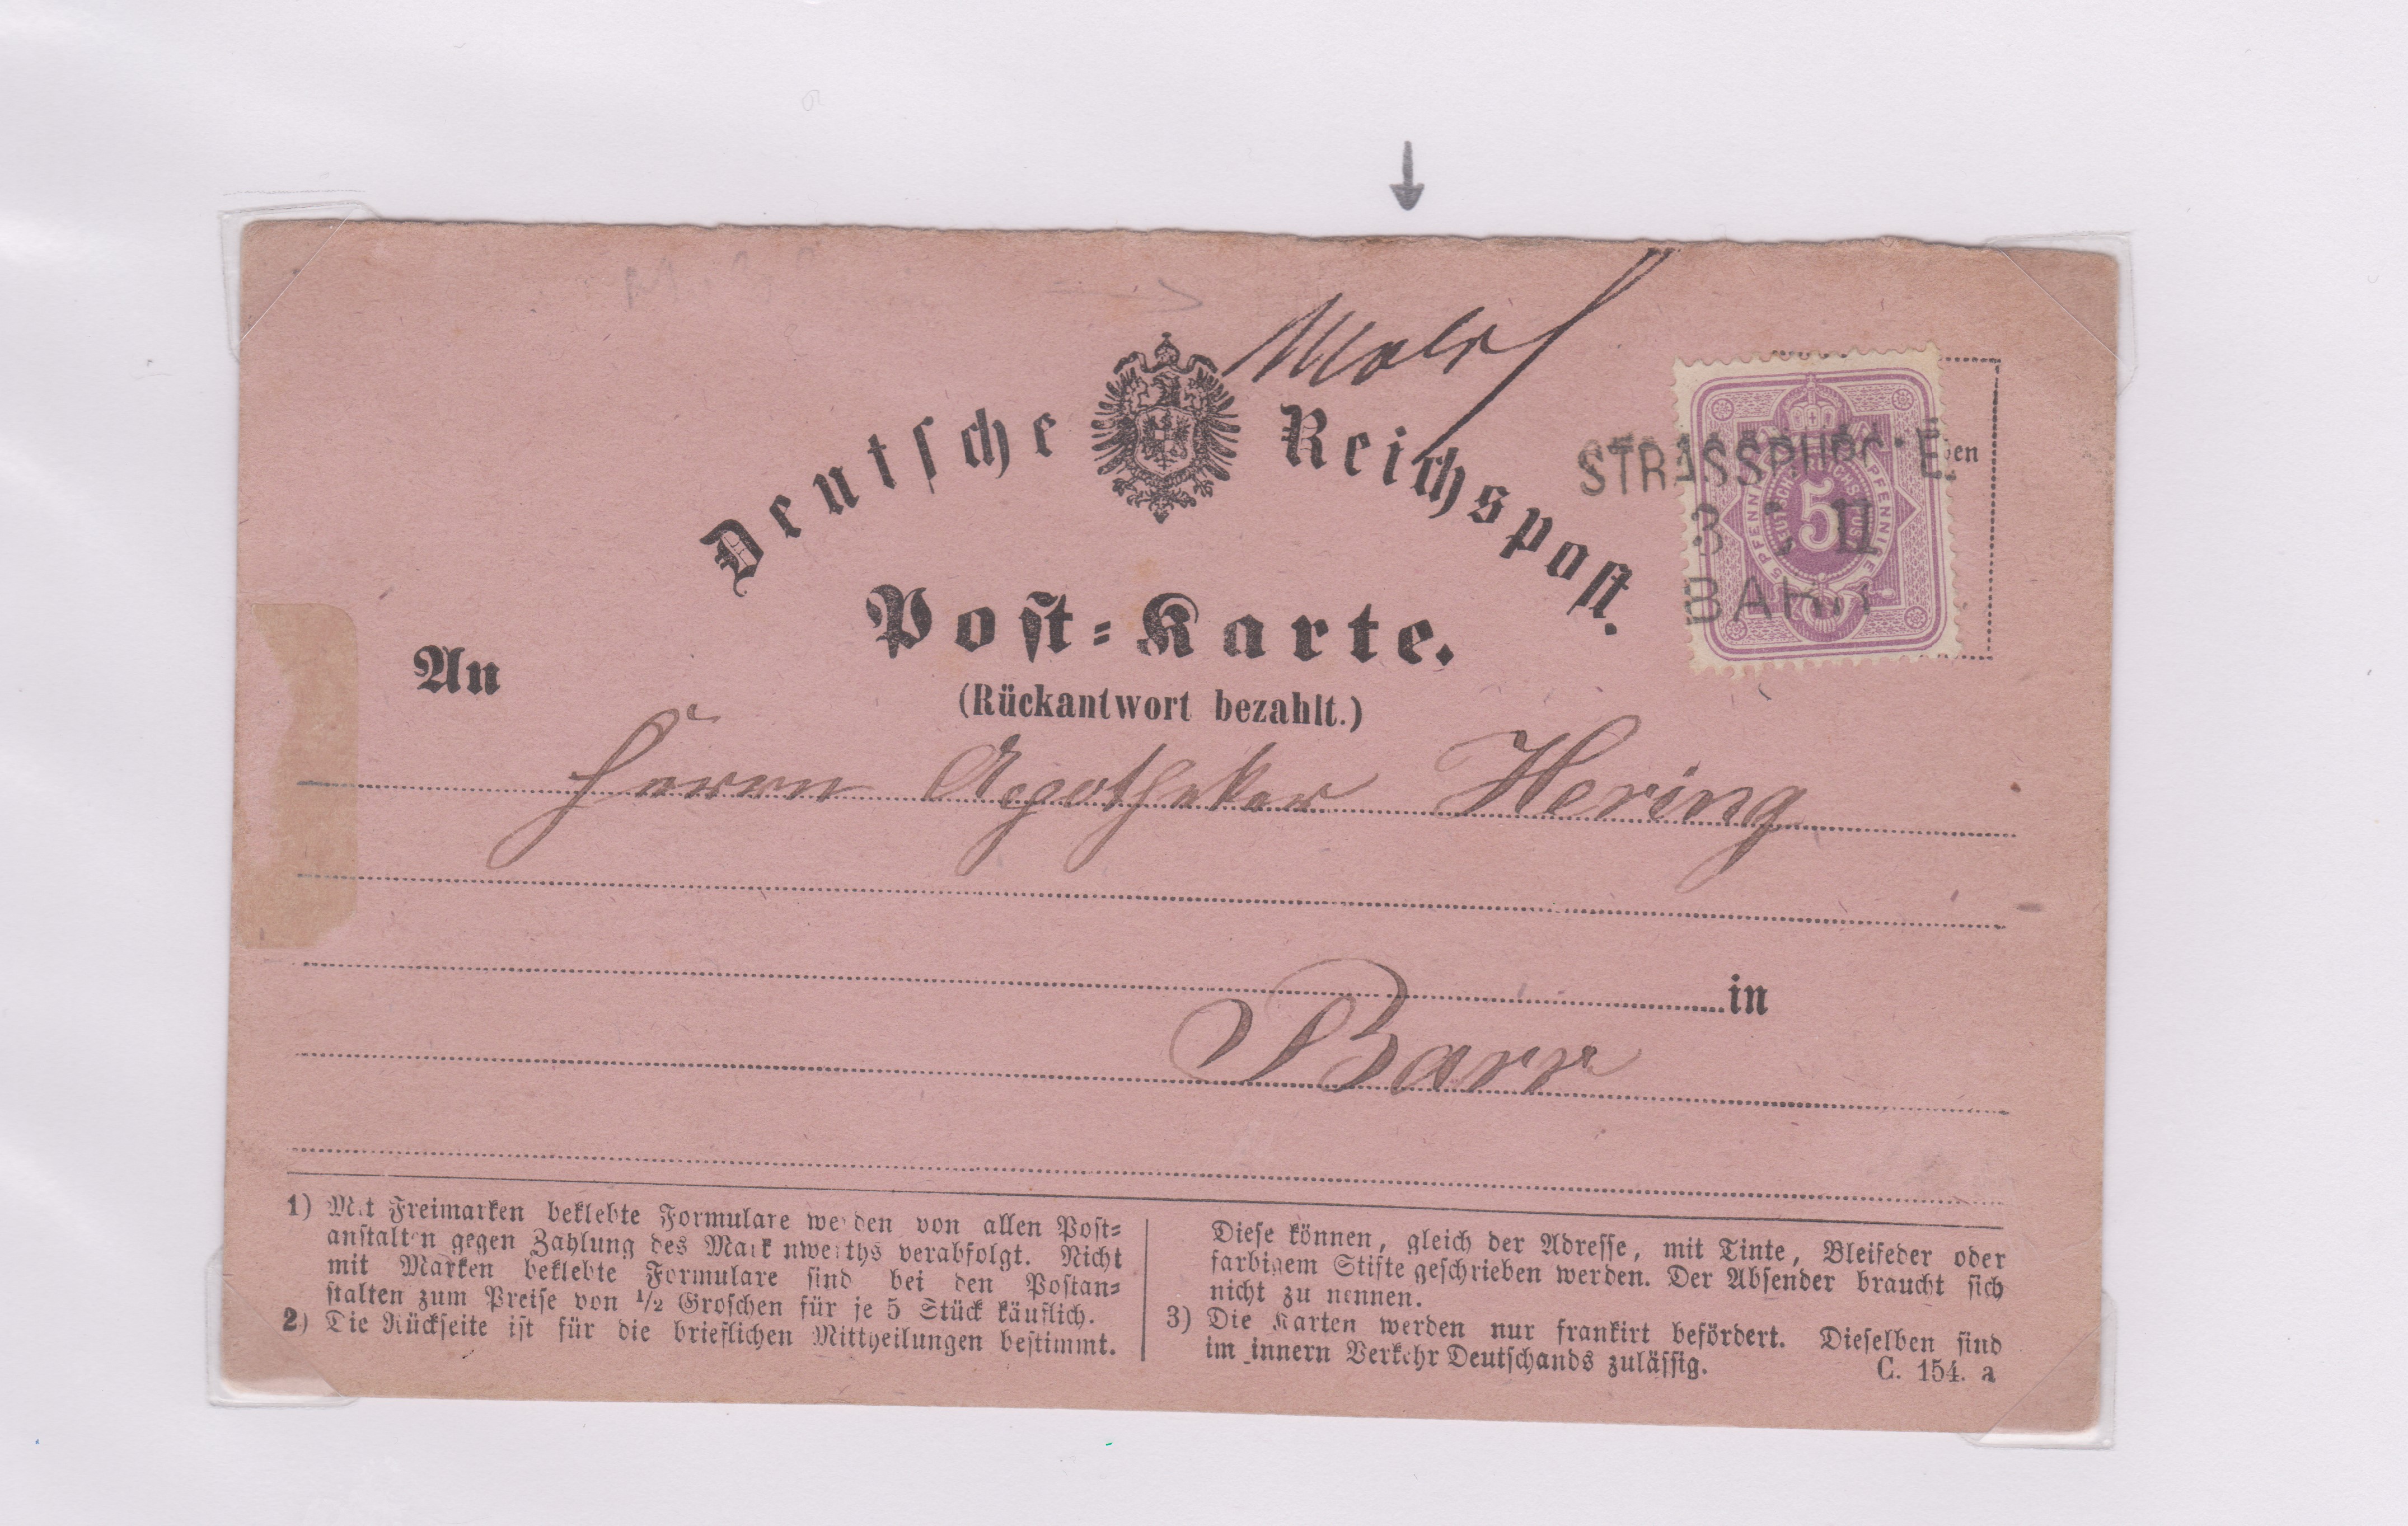 Deutsche Reichspost.
Post-Karte.
(Rückantwort bezahlt.)
5 PFENNIG
5
PFENNIGE
BAHN
An
Herrn Apotheker Hering
in
Barr
1) Mit Freimarken beklebte Formulare werden von allen Post-
anstalten gegen Zahlung des Markenwerths verabfolgt. Nicht
mit Marken beklebte Formulare sind bei den Postan-
stalten zum Preise von 1/2 Groschen für je 5 Stück käuflich.
2) Die Rückseite ist für die brieflichen Mittheilungen bestimmt.
Diese können, gleich der Adresse, mit Tinte, Bleifeder oder
farbigem Stifte geschrieben werden. Der Absender braucht sich
nicht zu nennen.
3) Die Karten werden nur frankirt befördert. Dieselben sind
im innern Verkehr Deutschands zulässig.
C. 154. a